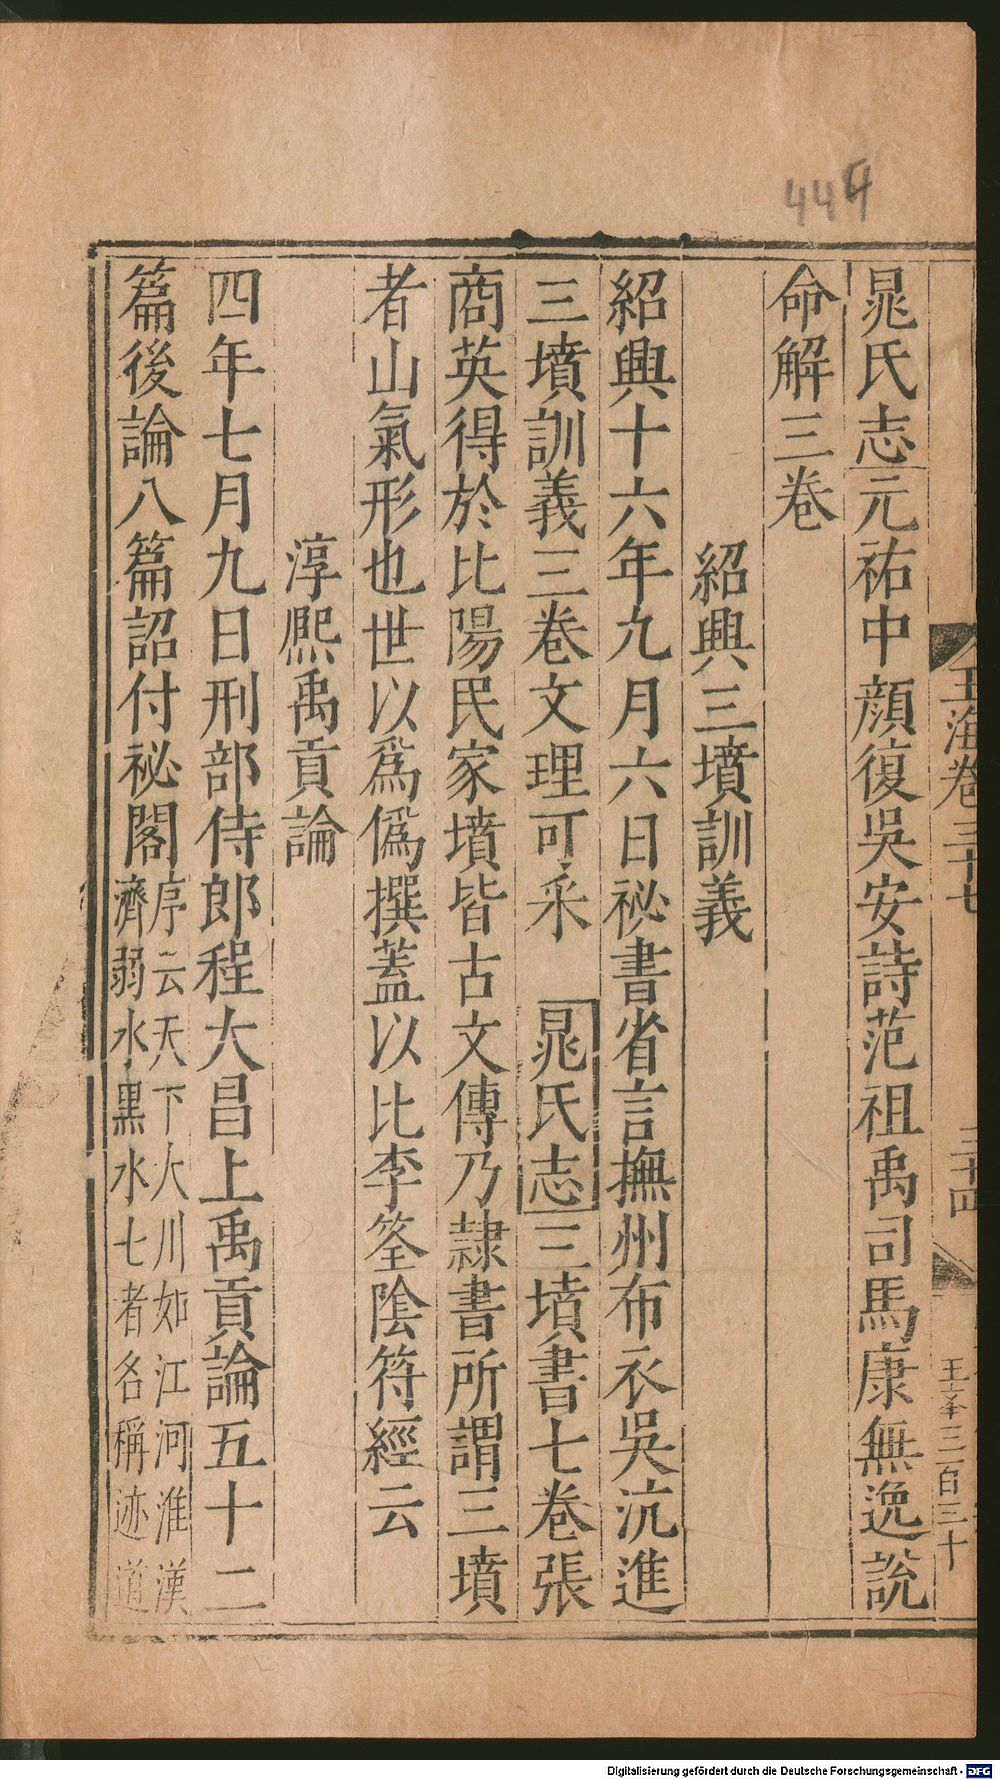 444
玉海卷三十七
三十四
王夆三百三十
晁氏志元祐中顏復吳安詩范祖禹司馬康無逸說
命解三卷
紹興三墳訓義
紹興十六年九月六日祕書省言撫州布衣吳沆進
三墳訓義三卷文理可采 晁氏志三墳書七卷張
商英得於比陽民家墳皆古文傳乃隷書所謂三墳
者山氣形也世以爲僞撰蓋以比李筌陰符經云
淳熙禹貢論
四年七月九日刑部侍郎程大昌上禹貢論五十二
篇後論八篇詔付祕閣
序云天下大川如江河淮漢
濟弱水黒水七者名稱迹道
Digitalisierung gefördert durch die Deutsche Forschungsgemeinschaft - DFG